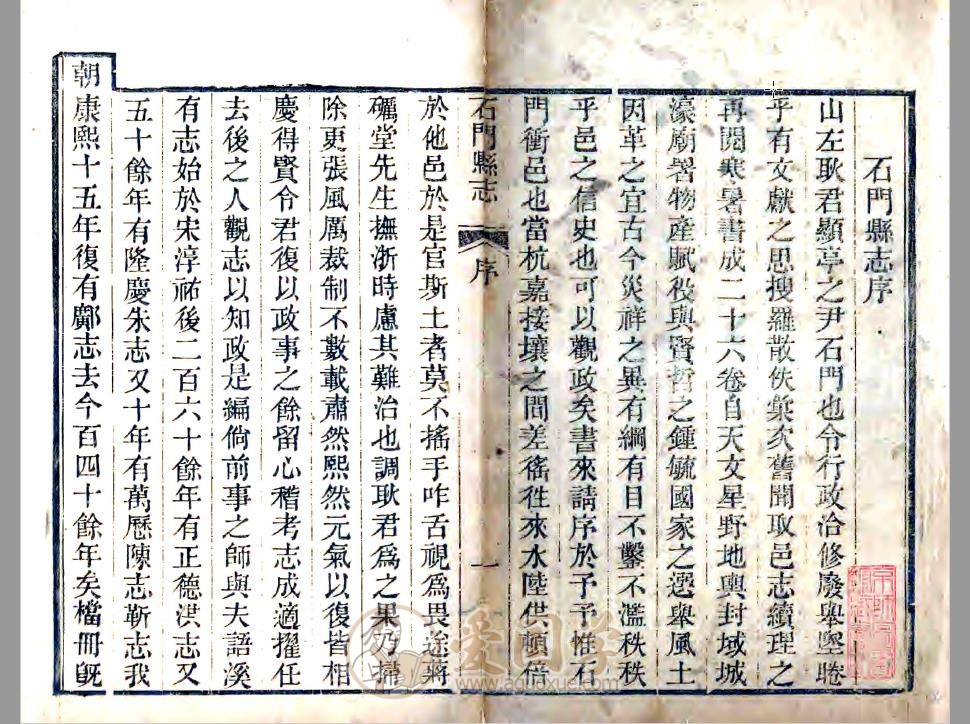 石門縣志序
山左耿君顯亭之尹石門也令行政治修廢舉墜睠
乎有文獻之思搜羅散佚彙次舊聞取邑志續理之
再閱寒暑書成二十六卷自天文星野地輿封域城
濠廟署物產賦役與賢哲之鍾毓國家之選舉風土
因革之宜古今災祥之異有綱有目不鑿不濫秩秩
乎邑之信史也可以觀政矣書來請序於予予惟石
門衝邑也當杭嘉接壤之間差徭徃來水陸供頓倍
石門縣志 序 一
於他邑於是官斯土者莫不搖手咋舌視爲畏途蔣
礪堂先生撫浙時慮其難治也調耿君爲之果乃掃
除更張風厲裁制不數載肅然熙然元氣以復皆相
慶得賢令君復以政事之餘留心稽考志成適擢任
去後之人觀志以知政是編倘前事之師與夫語溪
有志始於宋淳祐後二百六十餘年有正德洪志又
五十餘年有隆慶朱志又十年有萬歷陳志靳志我
朝康熙十五年復有鄺志去今百四十餘年矣檔冊旣
愛國學
www.aguoxue.com